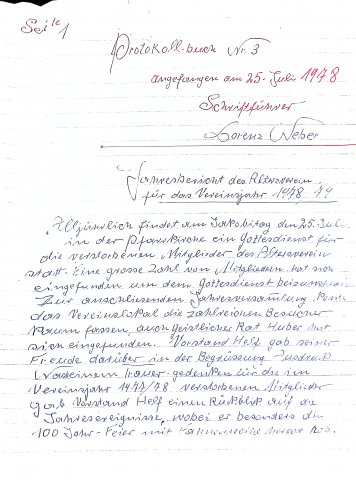 Seite 1
Protokollbuch Nr. 3
angefangen am 25. Juli 1978
Schriftführer
Lorenz Weber
Jahresbericht des Altersverein
für das Vereinsjahr 1978-79
Alljährlich findet am Jakobitag den 25. Juli
in der Pfarrkirche ein Gottesdienst für
die verstorbenen Mitglieder des Altersverein
statt. Eine grosse Zahl von Mitgliedern hat sich
eingefunden um dem Gottesdienst beizuwohnen.
Zur anschliessenden Jahresversamlung konnte
das Vereinslokal die zahlreichen Besucher
kaum fassen, auch geistlicher Rat Huber hat
sich eingefunden. Vorstand Helf gab seiner
Freude darüber in der Begrüssung Ausdruck
Nach einem gedenken für die im
Vereinsjahr 1977/78 verstorbenen Mitglieder
gab Vorstand Helf einen Rückblick auf die
Jahresereignisse, wobei er besonders die
100 Jahr-Feier mit Fahnenweihe hervor hob.